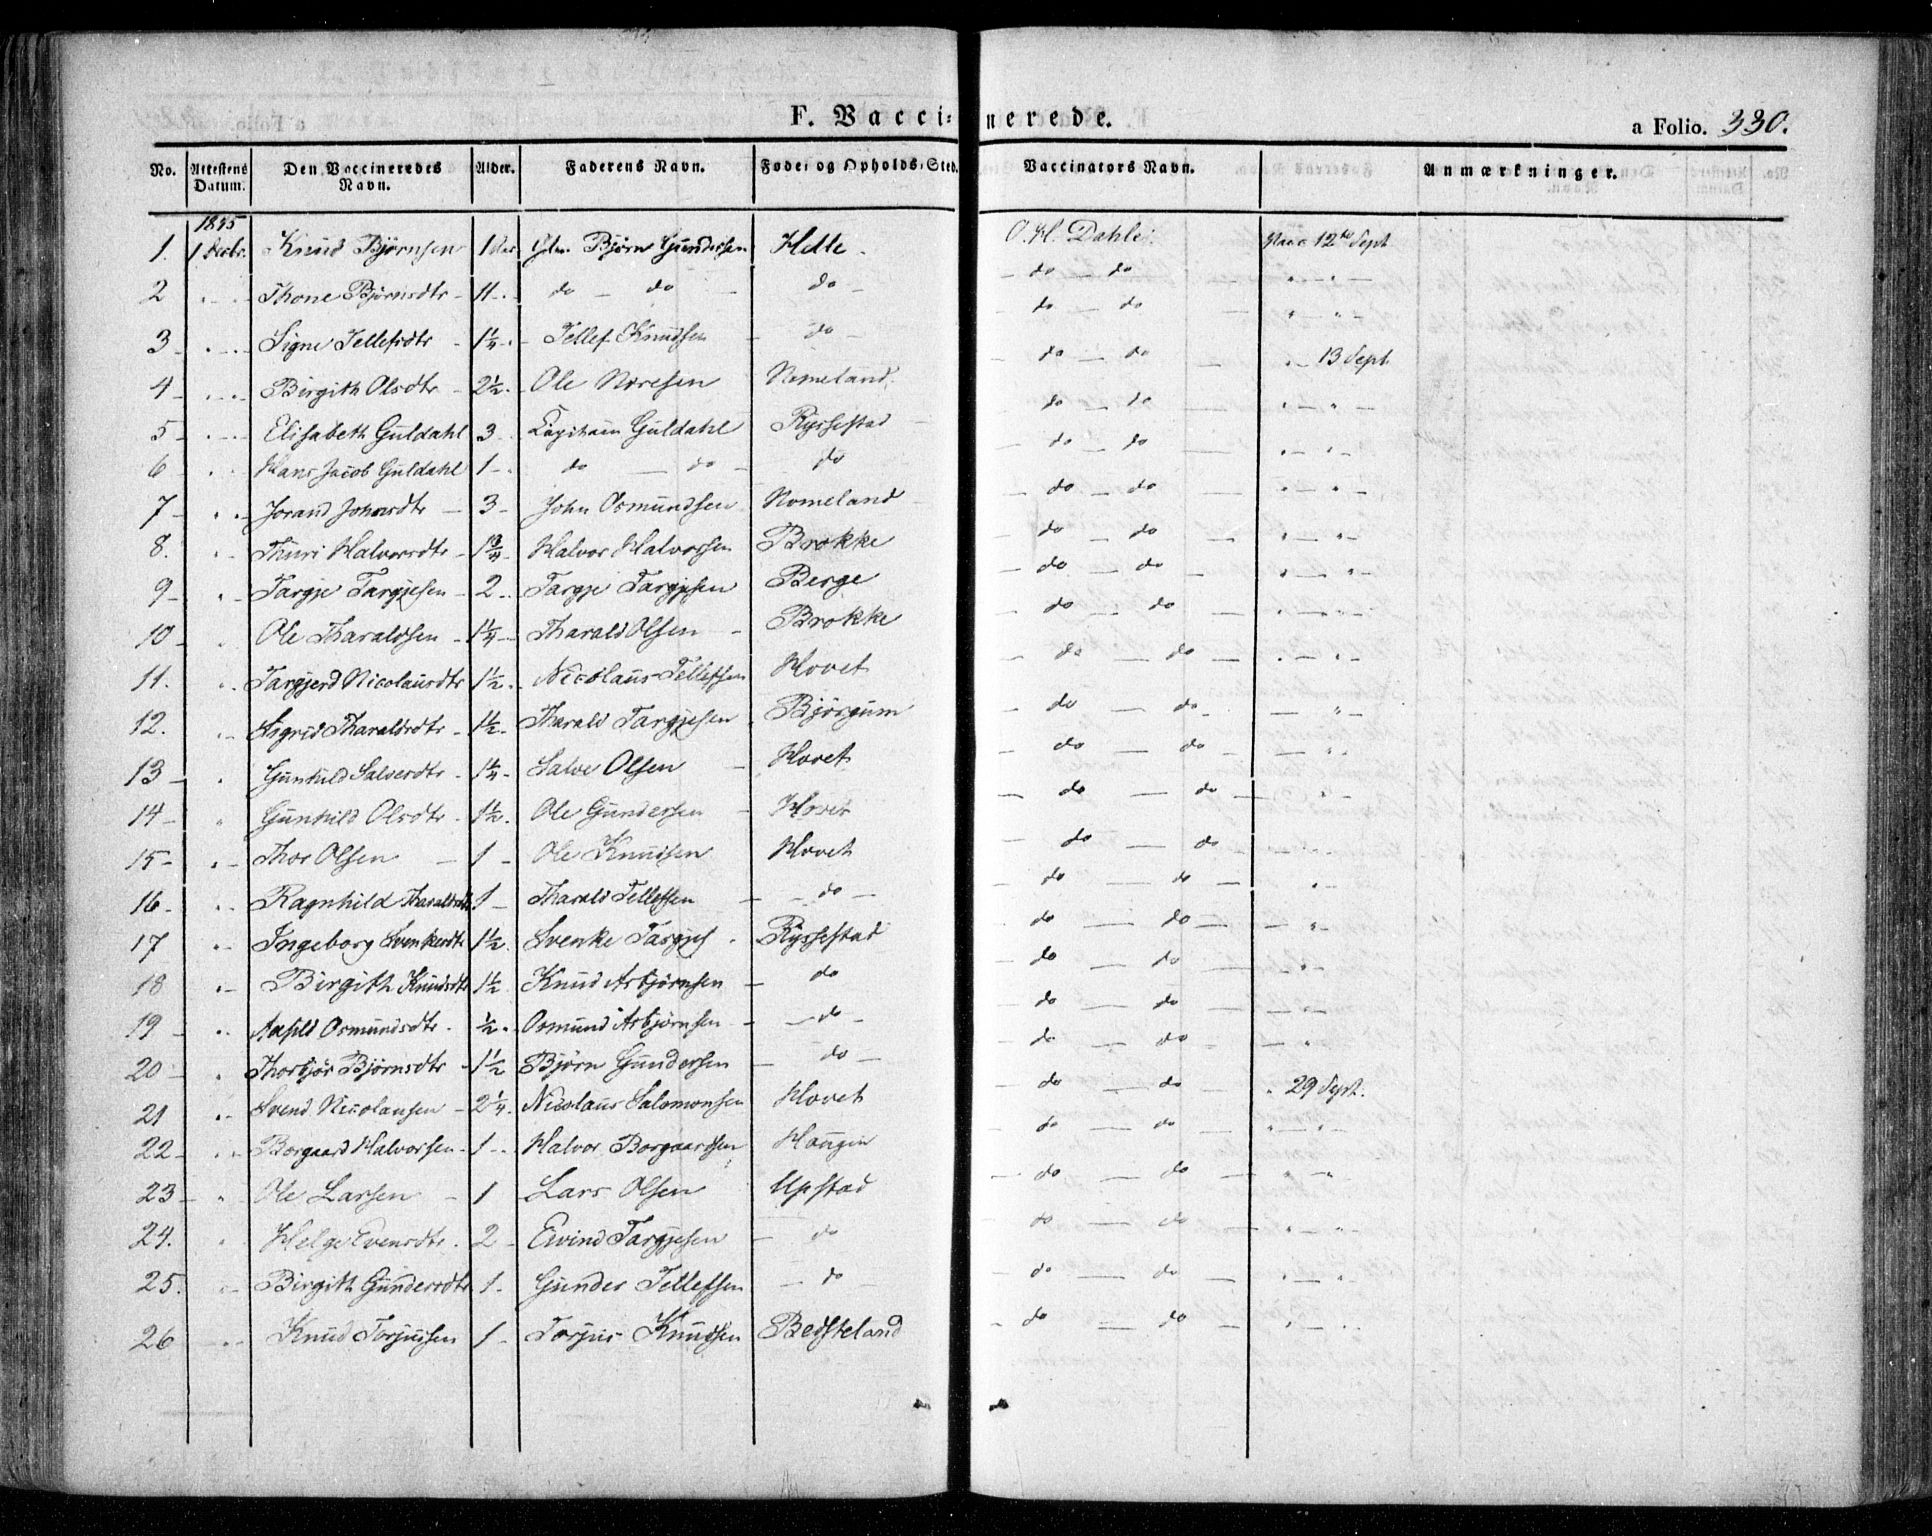 F. Vaccinerede.
a Folio. 330.
No. Attestens Datum. Den Vaccineredes Navn. Alder. Faderens Navn. Føde- og Opholds-Sted. Vaccinators Navn. Anmærkninger.
1845
1. 1 Knud Bjørnsen 1 Bjørn Gundersen Helle. O. H. Dahle. 12te Sept
2 " Thone Bjørnsdtr 11 do do do do do " "
3 " Signe Tellefsdtr 1 1/4 Tellef Knudsen do do do " "
4 " Birgith Olsdtr 2 1/2 Ole Noresen Nomeland do do " 13 Sept
5 " Elisabeth Guldahl 3 Capitain Guldahl Ryssestad do do " "
6 " Hans Jacob Guldahl 1 do do do do do " "
7 " Jorand Johnsdtr 3 John Osmundsen Nomeland do do " "
8. " Thuri Halvorsdtr 1 3/4 Halvor Halvorsen Brokke do do " "
9 " Targje Targjesen 2 Targje Targjesen Berge do do " "
10 " Ole Tharaldsen 1 1/4 Tharald Olsen Brokke do do " "
11. " Targjerd Nicolausdtr 1 1/2 Nicolaus Tellefsen Hovet do do " "
12. " Sigrid Tharaldsdtr 1 1/2 Tharald Targjesen Bjørgum do do "
13 " Gunhild Salvesdtr 1 1/4 Salve Olsen Hovet do do "
14 " Gunhild Olsdtr 1 1/2 Ole Gundersen Hovet do do "
15 " Thor Olsen 1 Ole Knudsen Hovet do do "
16 " Ragnhild Tharaldsdtr 1 Tharald Tellefsen do do do "
17 " Ingeborg Svenkesdtr 1 1/2 Svenke Targjes Ryssestad do do "
18 " Birgith Knudsdtr 1 1/2 Knud Asbjørnsen do do do "
19 " Osmundsdtr 1/2 Osmund Asbjørnsen do do do "
20 " Thorbjør Bjørnsdtr 1 1/2 Bjørn Gundersen do do do "
21 " Svend Nicolausen 2 1/4 Nicolaus Salomonsen Hovet do do " 29 Sept.
22 " Borgaard Halvorsen 1 Halvor Borgaardsen Haugen do do " "
23 " Ole Larsen 1 Lars Olsen Upstad do do " "
24. " Helge Evensdtr 2 Eivind Targjesen do do do " "
25. " Birgith Gundersdtr 1 Gunder Tellefsen do do do " "
26 " Knud Torjussen 1 Torjus Knudsen Bedsteland do do " "